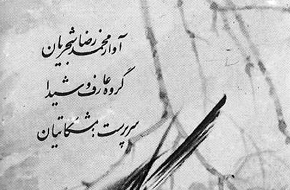 آواز محمدرضا شجریان
گروه عارف و شیدا
سرپرست: مشکاتیان